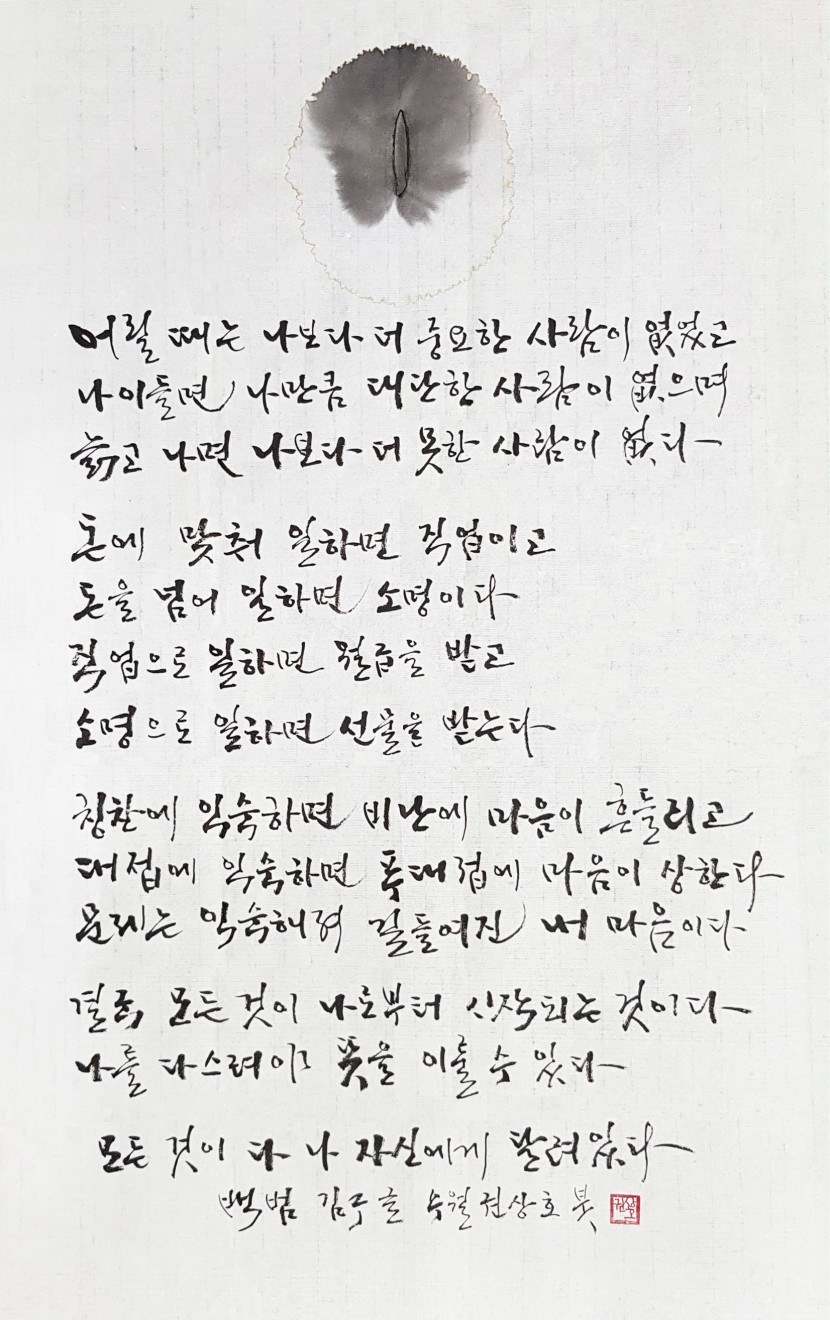 어릴 때는 나보다 더 중요한 사람이 없었고
나이들면 나만큼 대단한 사람이 없으며
늙고 나면 나보다 더 못한 사람이 없다
돈에 맞춰 일하면 직업이고
돈을 넘어 일하면 소명이다
직업으로 일하면 월급을 받고
소명으로 일하면 선물을 받는다
칭찬에 익숙하면 비난에 마음이 흔들리고
대접에 익숙하면 푸대접에 마음이 상한다
문제는 익숙해져 길들여진 내 마음이다
결국 모든 것이 나로부터 시작되는 것이다
나를 다스려야 뜻을 이룰 수 있다
모든 것이 다 나 자신에게 달려있다
백범 김구 글 수월 권상호 붓